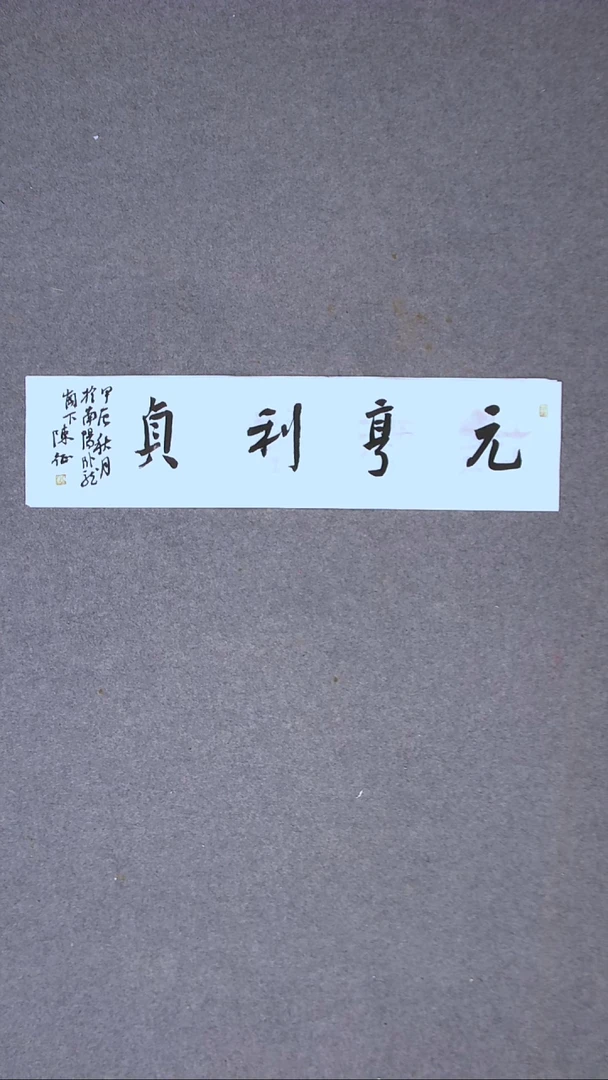 元亨利貞
甲辰秋月
於南陽卧龍
崗下陳征